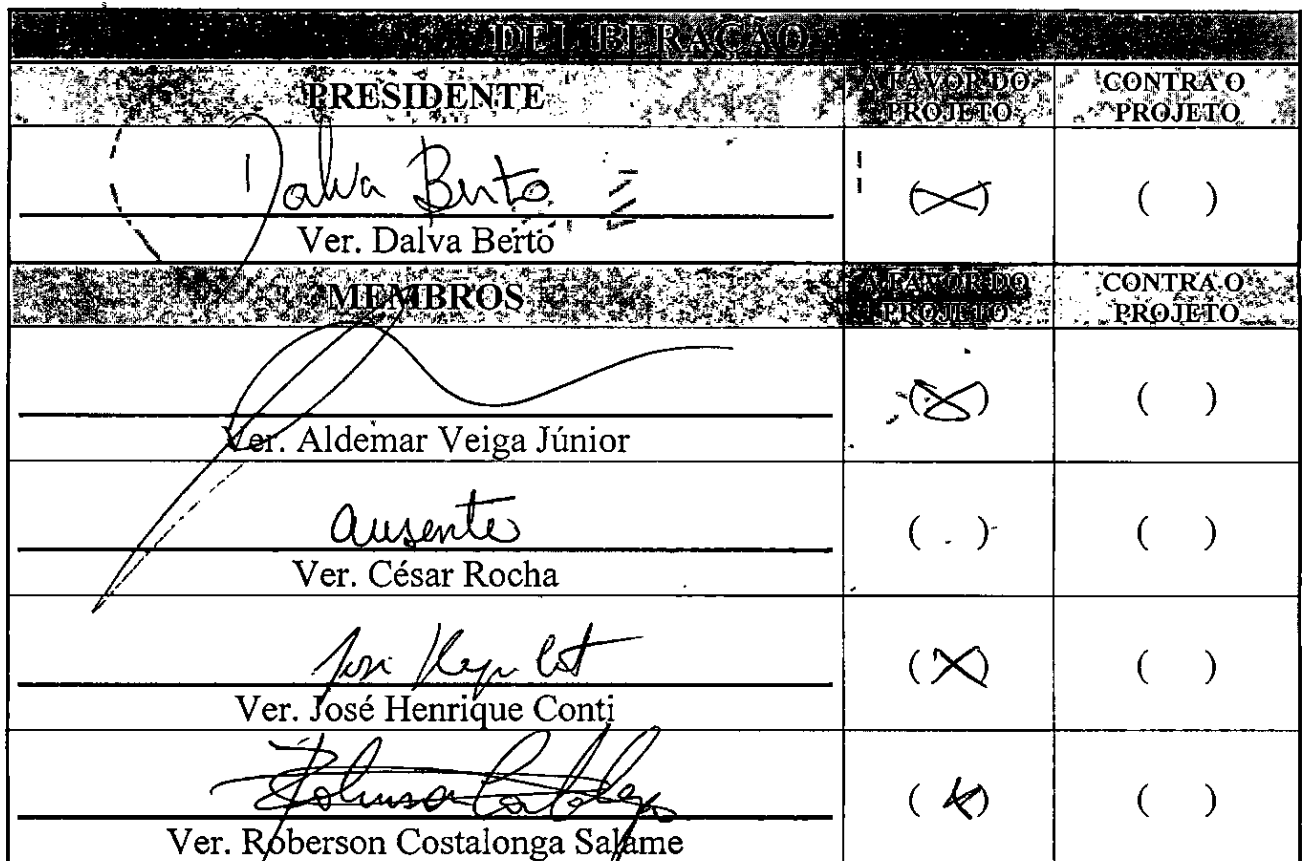 DELIBERAÇÃO
PRESIDENTE
A FAVOR DO PROJETO
CONTRA O PROJETO
Dalva Berto
(X)
( )
Ver. Dalva Berto
MEMBROS
A FAVOR DO PROJETO
CONTRA O PROJETO
(X)
( )
Ver. Aldemar Veiga Júnior
ausente
( )
( )
Ver. César Rocha
(X)
( )
Ver. José Henrique Conti
(X)
( )
Ver. Roberson Costalonga Salame